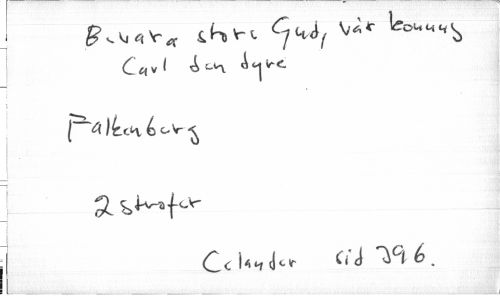 Bevara store Gud, vår konung
Carl den dyre
Falkenberg
2 strofer
Celander sid 396.